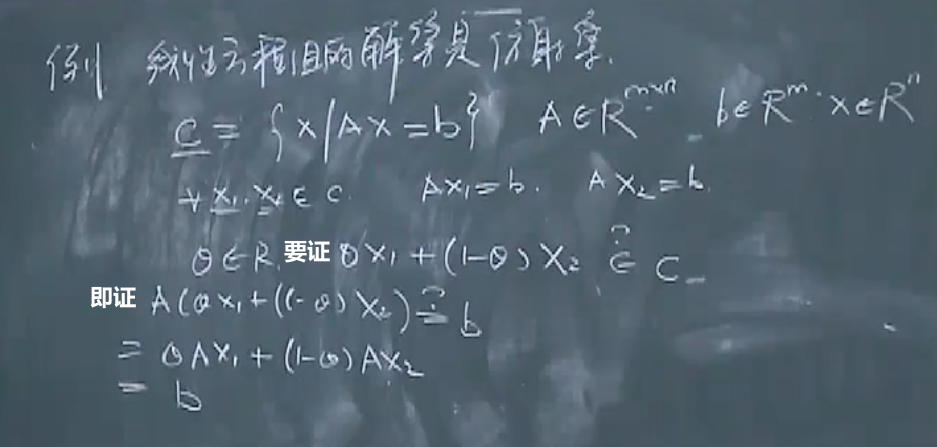 例 线性方程组的解集是仿射集.
C = {x|Ax=b} A∈R^{m×n} b∈R^m. x∈R^n
∀ x₁, x₂ ∈ C. Ax₁=b. Ax₂=b.
θ∈R. 要证 θx₁+(1-θ)x₂ ∈̂? C
即证 A(θx₁+(1-θ)x₂) =̂? b
= θAx₁+(1-θ)Ax₂
= b